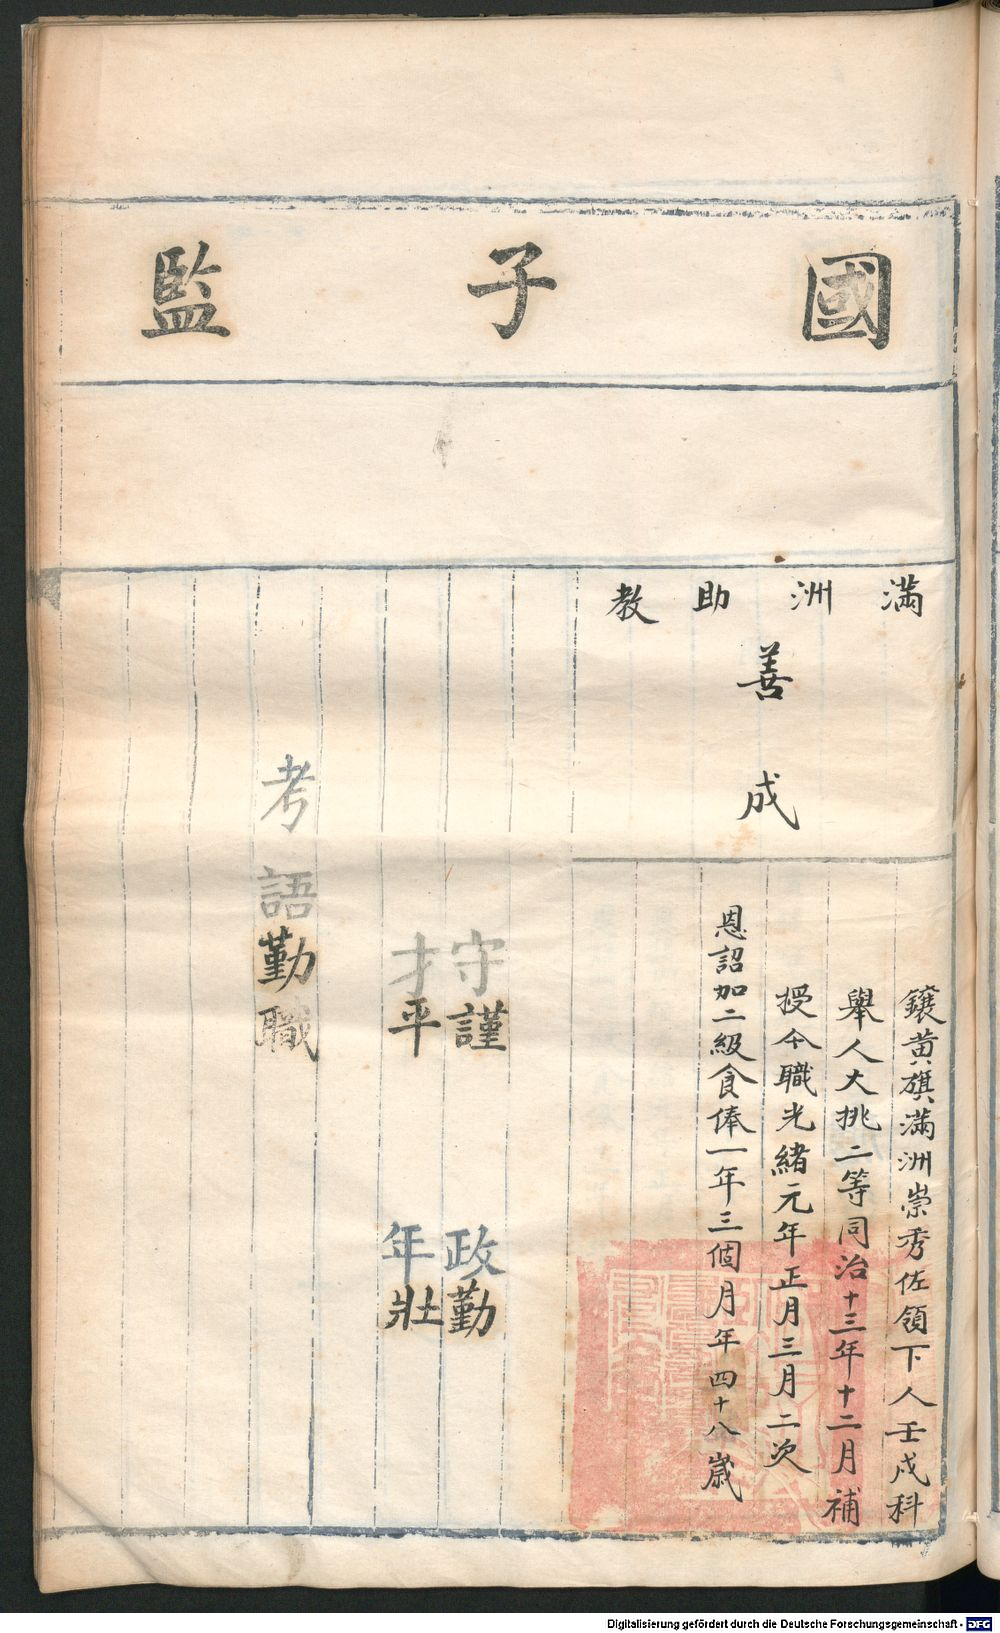 國子監
滿洲助教
善成
鑲黃旗滿洲崇秀佐領下人壬戌科
舉人大挑二等同治十三年十二月補
授今職光緒元年正月三月二次
恩詔加二級食俸一年三個月年四十八歲
守謹 政勤
才平 年壯
考語勤職
Digitalisierung gefördert durch die Deutsche Forschungsgemeinschaft - DFG